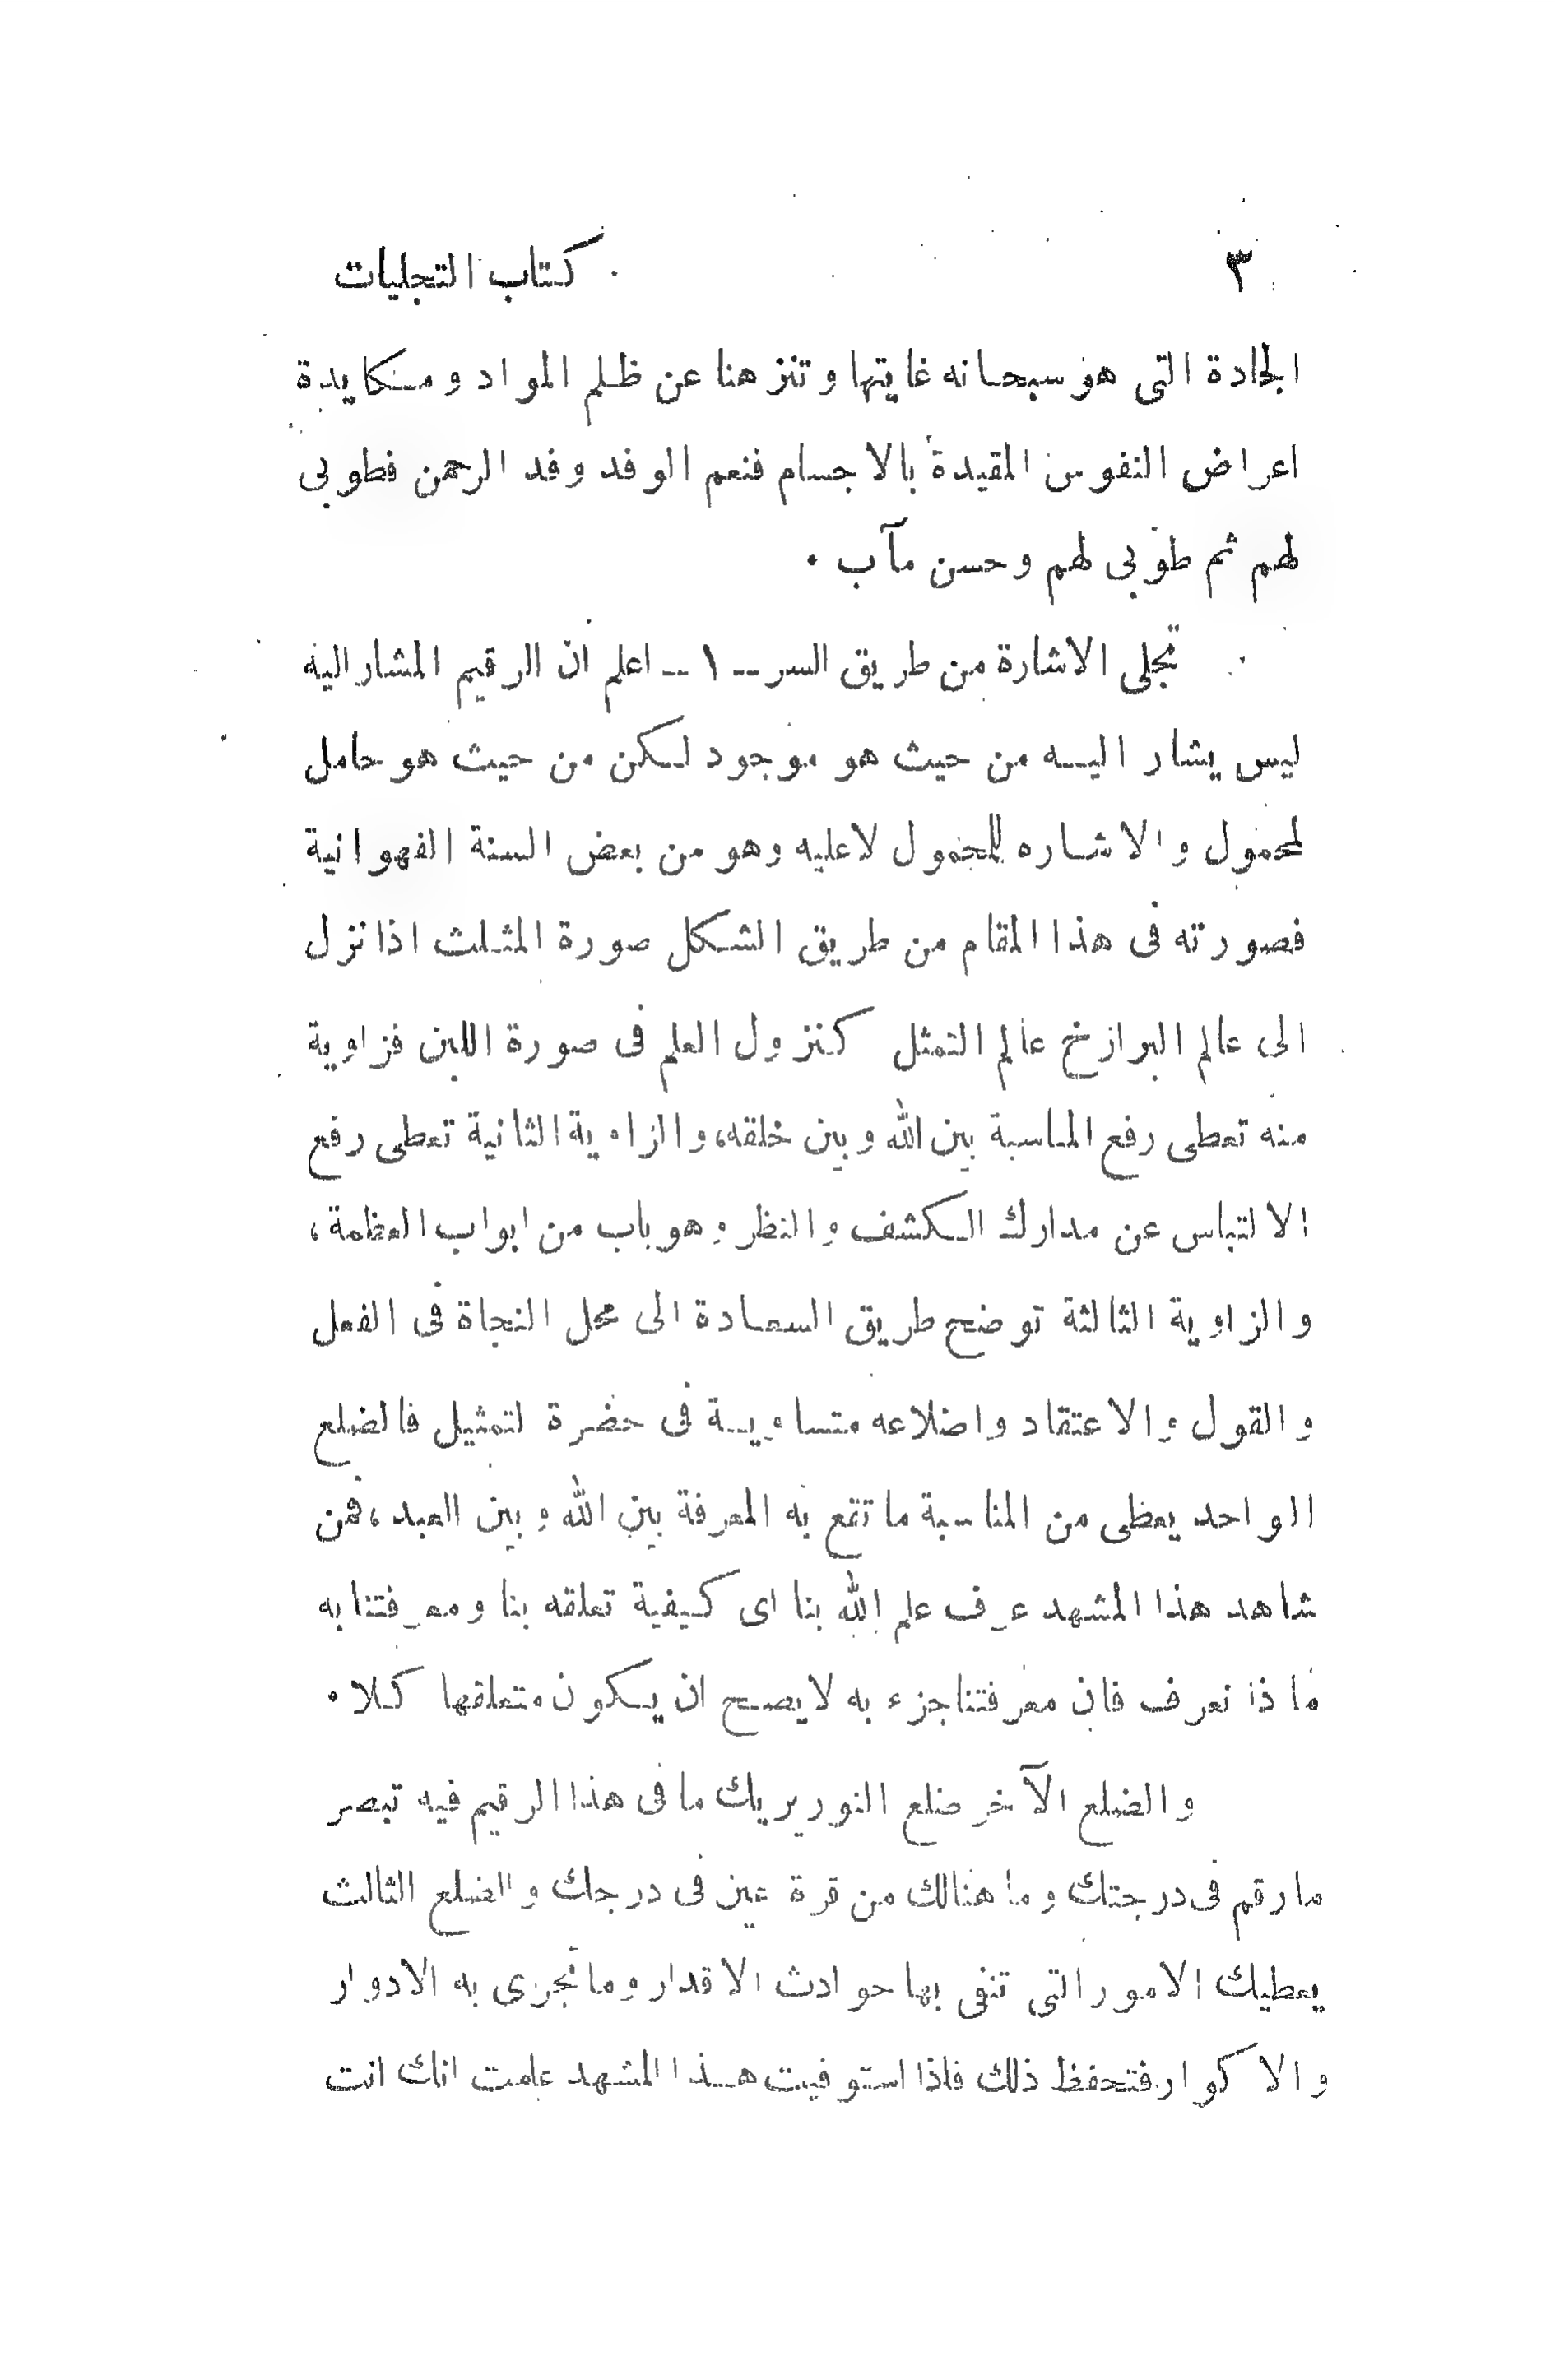 ٣ كتاب التجليات
الجادة التى هو سبحانه غايتها وتنزهنا عن ظلم المواد ومكايدة
اعراض النفوس المقيدة بالاجسام فنعم الوفد وفد الرحمن فطوبى
لهم ثم طوبى لهم وحسن مآب .
تجلى الاشارة من طريق السر -- ١ -- اعلم ان الرقيم المشار اليه
ليس يشار اليه من حيث هو موجود لكن من حيث هو حامل
لمحمول والاشاره للمحمول لا عليه وهو من بعض السنة الفهوانية
فصورته فى هذا المقام من طريق الشكل صورة المثلث اذا نزل
الى عالم البرازخ عالم التمثل كنزول العلم فى صورة اللبن فزاوية
منه تعطى رفع المناسبة بين الله وبين خلقه، والزاوية الثانية تعطى رفع
الالتباس عن مدارك الكشف والنظر وهو باب من ابواب العظمة ،
والزاوية الثالثة توضح طريق السعادة الى محل النجاة فى الفعل
والقول والاعتقاد واضلاعه متساوية فى حضرة لتمثيل فالضلع
الواحد يعطى من المناسبة ما تقع به المعرفة بين الله وبين العبد ، فمن
شاهد هذا المشهد عرف علم الله بنا اى كيفية تعلقه بنا ومعرفتنا به
ما ذا نعرف فان معرفتنا جزء به لا يصح ان يكون متعلقها كلا .
والضلع الآخر ضلع النور يريك ما فى هذا الرقيم فيه تبصر
ما رقم فى درجتك وما هنالك من قرة عين فى درجك والضلع الثالث
يعطيك الامور التى تنفى بها حوادث الاقدار وما تجرى به الادوار
والاكوار فتحفظ ذلك فاذا استوفيت هذا المشهد علمت انك انت